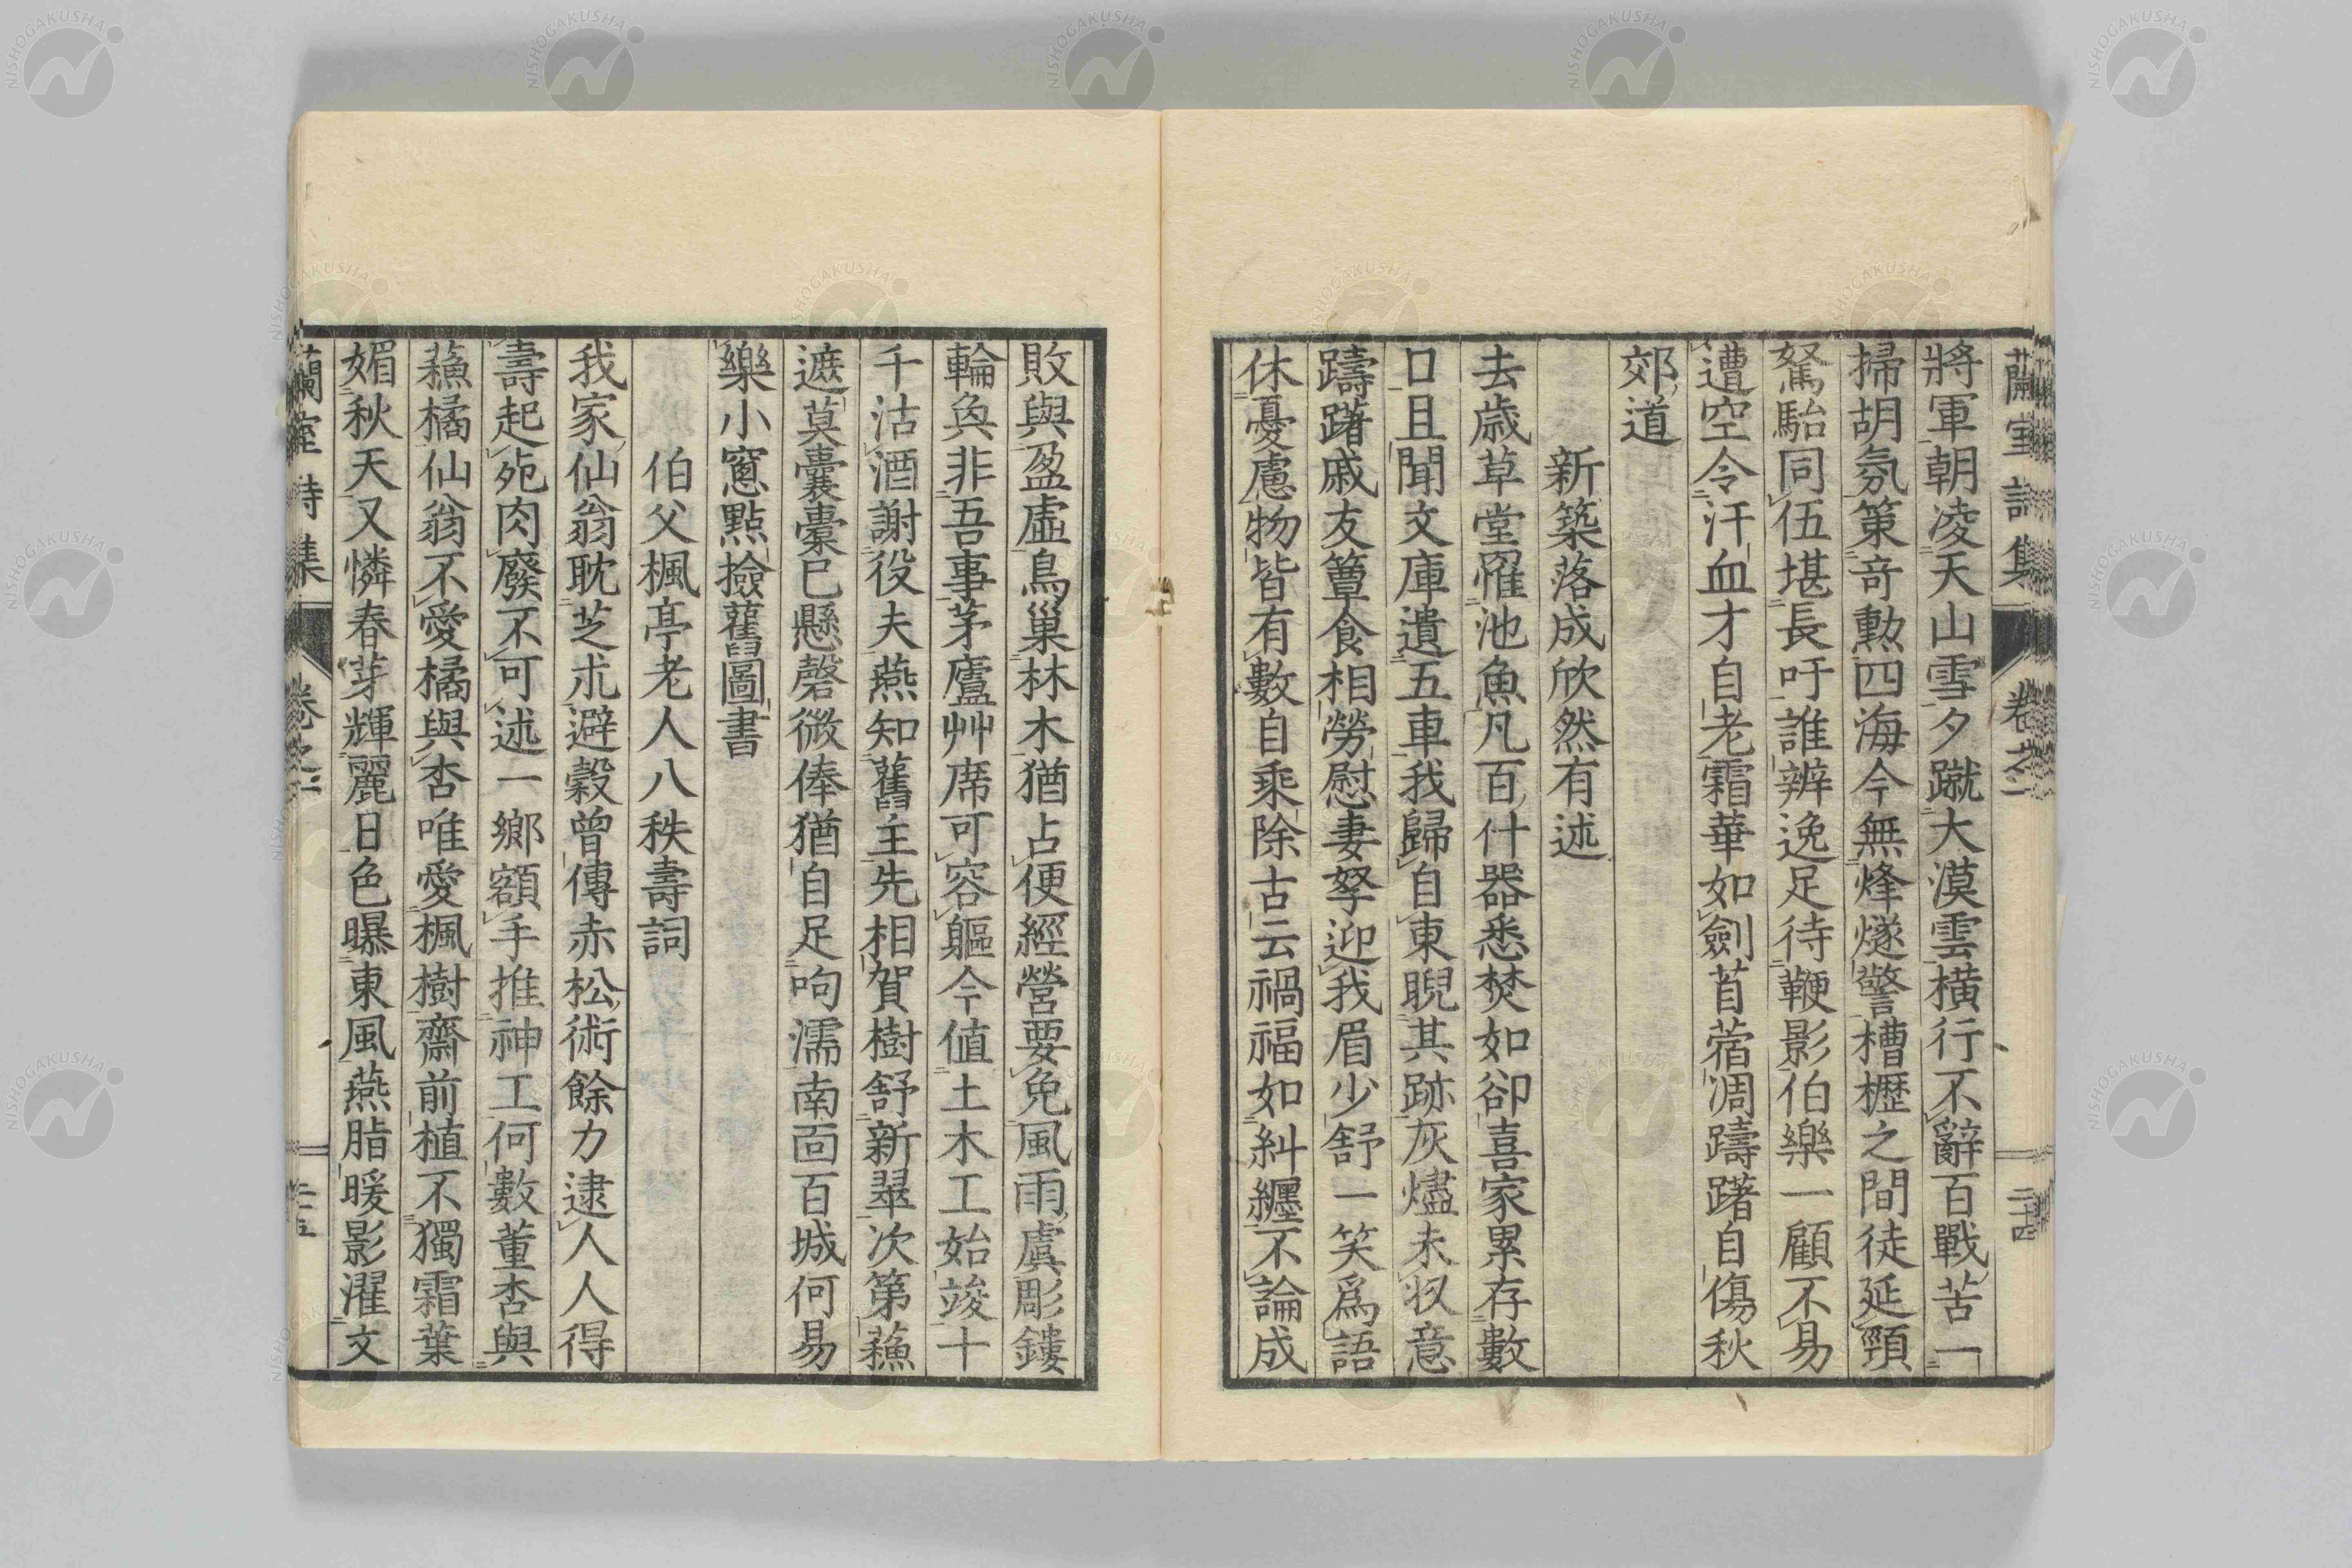 蘭室詩集 卷之二 二十四
將軍朝凌天山雪夕蹴大漠雲橫行不辭百戰苦一
掃胡氛策奇勳四海今無烽燧警槽櫪之間徒延頸
駑駘同伍堪長吁誰辨逸足待鞭影伯樂一顧不易
遭空令汗血才自老霜華如劍苜蓿凋躊躇自傷秋
郊道
新築落成欣然有述
去歲草堂罹池魚凡百什器悉焚如卻喜家累存數
口且聞文庫遺五車我歸自東睨其跡灰燼未收意
躊躇戚友簞食相勞慰妻孥迎我眉少舒一笑爲語
休憂慮物皆有數自乘除古云禍福如糾纆不論成
敗與盈虛鳥巢林木猶占便經營要免風雨虞彫鏤
輪奐非吾事茅廬艸席可容軀今値土木工始竣十
千沽酒謝役夫燕知舊主先相賀樹舒新翠次第蘓
遮莫囊橐已懸磬微俸猶自足呴濡南面百城何易
樂小窻點撿舊圖書
伯父楓亭老人八秩壽詞
我家仙翁耽芝朮避穀曾傳赤松術餘力逮人人得
壽起死肉廢不可述一鄉額手推神工何數董杏與
蘓橘仙翁不愛橘與杏唯愛楓樹齋前植不獨霜葉
媚秋天又憐春芽輝麗日色曝東風燕脂暖影濯文
蘭室詩集 卷之二 二十五
NISHOGAKUSHA